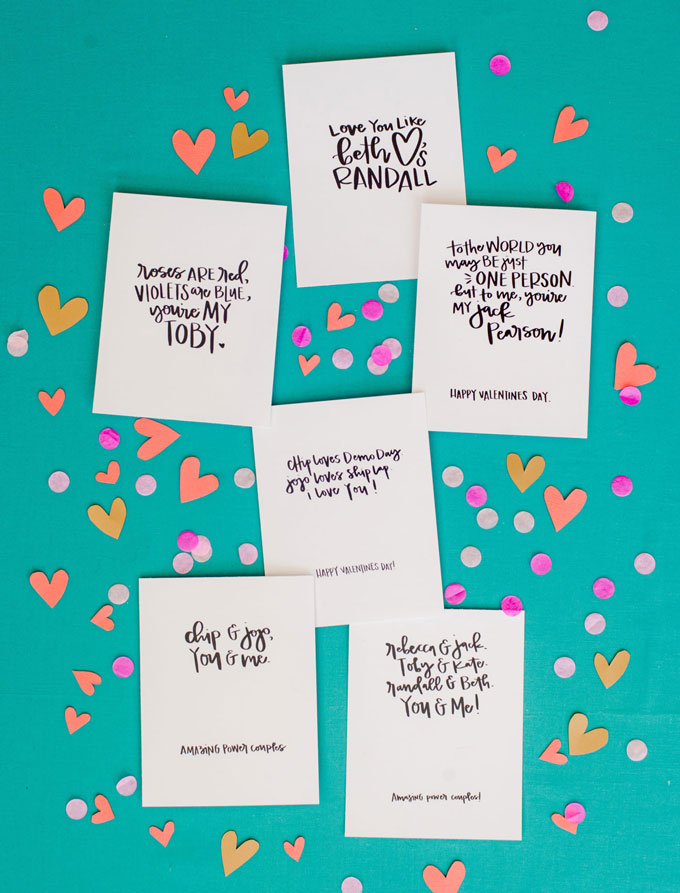 Love You Like
beth ♡'s
RANDALL
roses ARE red,
VIOLETS are BLUE,
you're MY
TOBY.
to the WORLD you
may BE just
ONE PERSON
but to me, you're
MY Jack
Pearson!
HAPPY VALENTINES DAY.
Chip loves Demo Day
Jojo loves shiplap
I love You!
HAPPY VALENTINES DAY!
chip & jojo,
You & me.
AMAZING POWER COUPLES
rebecca & jack.
Toby & Kate.
randall & Beth.
You & Me!
Amazing power couples!